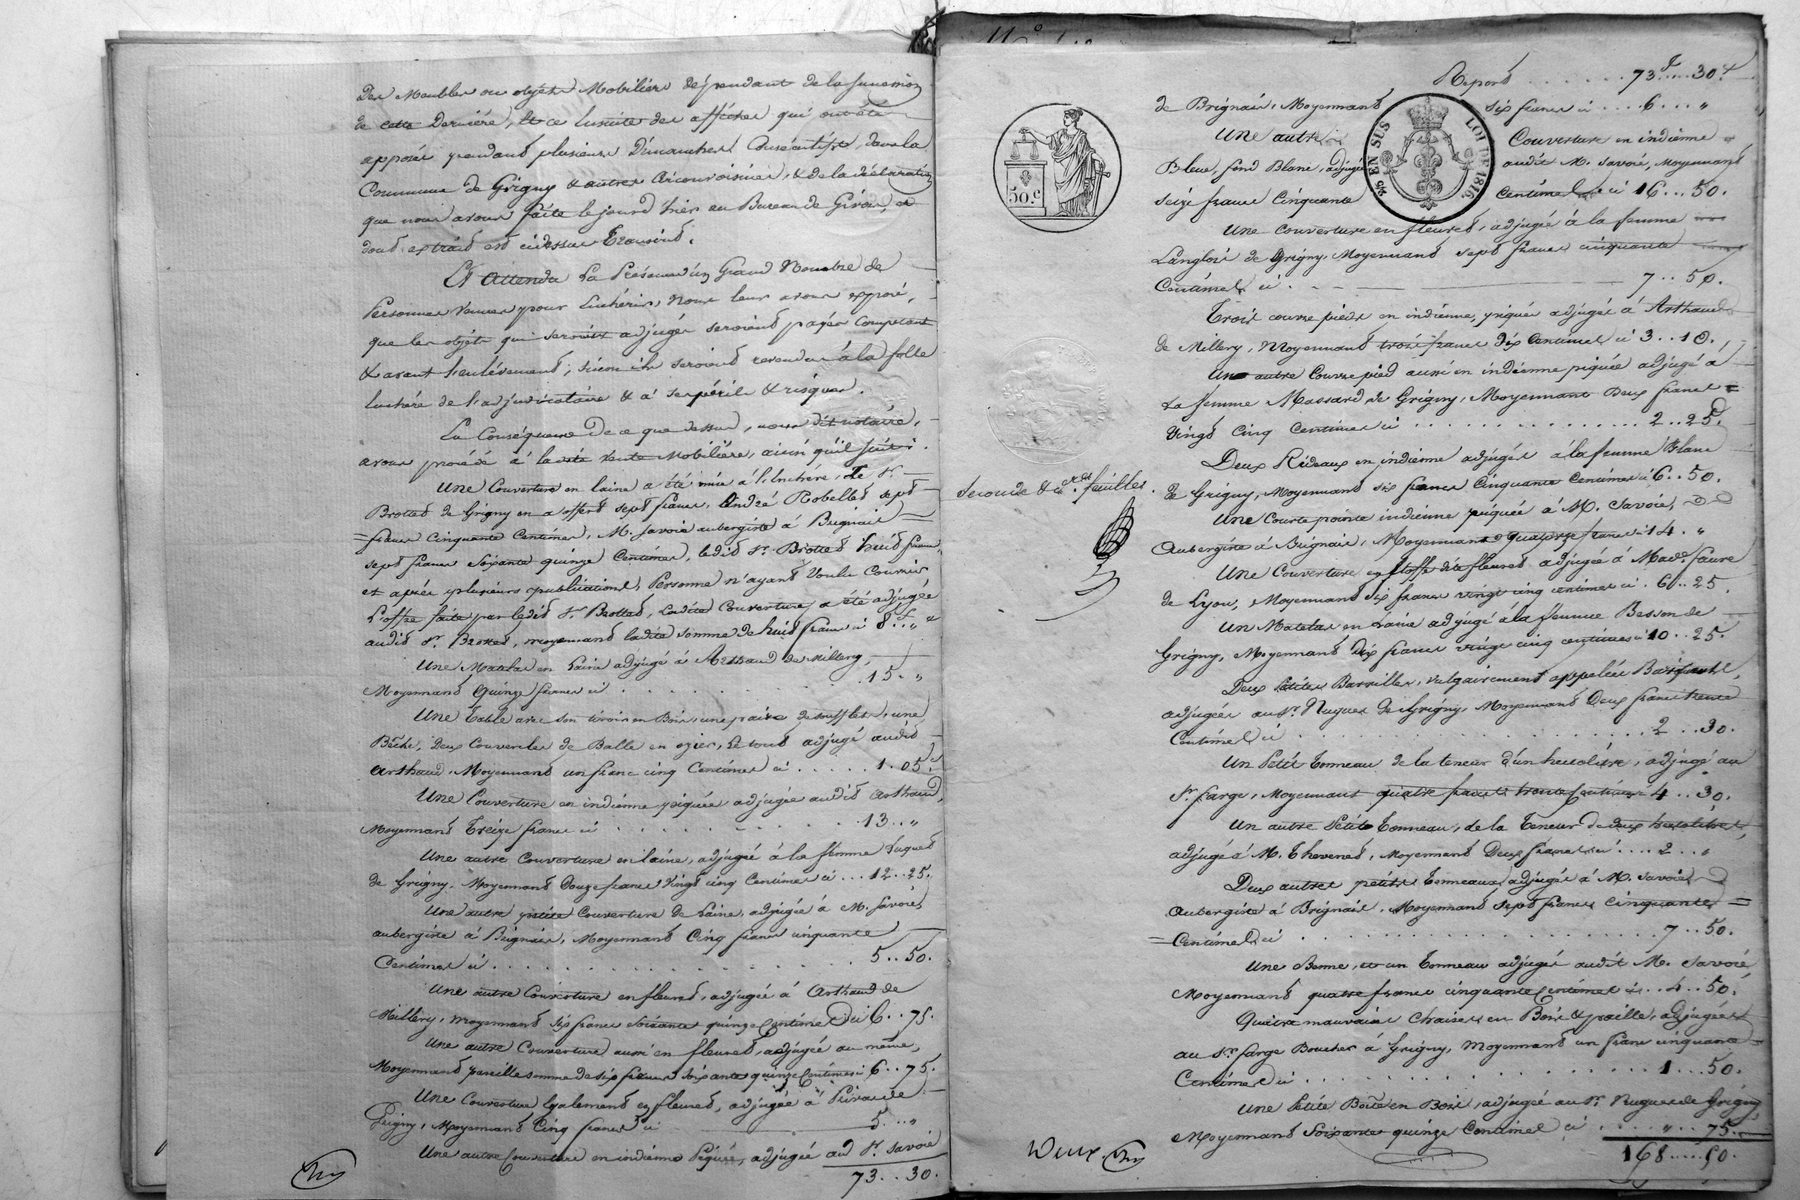 Des Meubles ou objets Mobiliers dépendant de la succession
de cette Dernière, Et ce ensuite des affiches qui ont été
apposés pendant plusieurs Dimanches Consécutifs, dans la
Commune de Grigny & autres Circonvoisines, & de la déclaration
que nous avons faite le jourd'hier au Bureau de Givors, et
dont extrait est cidessus Transcrit.
Et Attendu La Présence d'un Grand Nombre de
Personnes Venues pour Enchérir, Nous leur avons exposé,
que les objets qui seroient adjugés seroient payés Comptant
& avant l'enlévement, sinon ils seroient revendus à la folle
Enchére de l'adjudicataire & à ses périls & risques.
En Conséquence De ce que dessus, nous dit notaire,
avons procédé à ladite Vente Mobilière, ainsi qu'il suit:
Une Couverture en laine a été mise à l'Enchére, Le Sr.
Brottet de Grigny en a offert sept francs, André Robelles sept
francs Cinquante Centimes, M. Savoie aubergiste à Brignais
sept francs Soixante quinze Centimes, ledit Sr. Brottet huit francs,
et aprés plusieurs publications, Personne n'ayant Voulu Couvrir
L'offre faite par ledit Sr. Brottet, Ladite Couverture a été adjugée
audit Sr. Brottet, moyennant ladite somme de huit francs ci 8f..„c
Une Matelas en Laine adjugé à Arthaud de Millery,
Moyennant Quinze francs ci . . . . . . . . . 15. „
Une Table avec son tiroir en Bois, une paire de soufflets, une
Bêche, deux Couvercles de Balle en ozier, Le tout adjugé audit
Arthaud, Moyennant un franc cinq Centimes ci . . . . . 1. 05.
Une Couverture en indienne piquée adjugée audit Arthaud,
Moyennant Treize francs ci . . . . . . . . . 13 .. „
Une autre Couverture en laine, adjugée à la femme
de Grigny, Moyennant Douze francs Vingt cinq Centimes ci ... 12..25.
Une autre petite Couverture de Laine, adjugée à M. Savoie,
aubergiste à Brignais, Moyennant Cinq francs cinquante
Centimes ci . . . . . . . . . . . . . 5..50.
Une autre Couverture en fleuret, adjugée à Arthaud de
Millery, moyennant six francs soixante quinze Centimes ci 6..75.
Une autre Couverture aussi en fleuret, adjugée au même,
Moyennant pareille somme de six francs soixante quinze Centimes ci 6..75.
Une Couverture Egalement en fleuret, adjugée à de
Grigny, Moyennant Cinq francs ci 5... „
Une autre Couverture en indienne Piquée, adjugée au Sr. Savoie
73..30.
Report . . . . . . . 73f...30c
de Brignais, Moyennant six francs ci ....6... „
Une autre Couverture en indienne
Bleue, fond Blanc, adjugée audit M. Savoie, Moyennant
seize francs Cinquante Centimes ci 16...50.
Une Couverture en fleuret, adjugée à la femme
Langlois de Grigny, Moyennant sept francs cinquante
Centimes ci . . 7..50.
Trois couvre pieds en indienne, piqués adjugés à Arthaud
de Millery, Moyennant trois francs dix Centimes ci 3..10.
Un autre Couvre pied aussi en indienne piquée adjugé à
La femme Massard de Grigny, Moyennant Deux francs
Vingt cinq Centimes ci . . . . . . . . . . . . . . . 2..25.
Deux Rideaux en indienne adjugés à la femme Blanc
de Grigny, Moyennant six francs Cinquante Centimes ci 6..50.
Une Courte pointe indienne piquée à M. Savoie,
Aubergiste à Brignais, Moyennant quatorze francs ci 14. „
Une Couverture en Etoffe dite fleuret adjugée à Made. Faure
de Lyon, Moyennant six francs vingt cinq centimes ci . 6..25.
Un Matelas en Laine adjugé à la femme Besson de
Grigny, Moyennant Dix francs vingt cinq centimes ci 10..25.
Deux petites Barilles, vulgairement appelées
adjugées au Sr. Nugues de Grigny, Moyennant Deux francs trente
Centimes ci . . . . . . . . . . . . . . . . . 2...30.
Un Petit Tonneau de la teneur d'un hectolitre, adjugé au
Sr. Farge, Moyennant quatre francs trente Centimes ci 4..30.
Un autre Petit Tonneau, de la Teneur de deux hectolitres,
adjugé à M. Thevenet, Moyennant Deux francs ci .... 2... „
Deux autres petits Tonneaux adjugés à M. Savoie
Aubergiste à Brignais, Moyennant sept francs cinquante
Centimes ci . . . . . . . . . . . . . . . . 7..50.
Une Benne, et un Tonneau adjugés audit M. Savoié
Moyennant quatre francs cinquante centimes ci .. 4..50.
Quatre mauvaises Chaises en Bois & paille, adjugées
au Sr. Farge Boucher à Grigny, Moyennant un franc cinquante
Centimes ci . . . . . . . . . . . . . . . 1...50.
Une Petite Boîte en Bois, adjugée au Sr. Nugues de Grigny,
Moyennant Soixante quinze Centimes ci . . . . . „ .. 75.
168....50.
50.C
25 EN SUS
LOI DE 1816
Seconde & feuilles.
Deux.